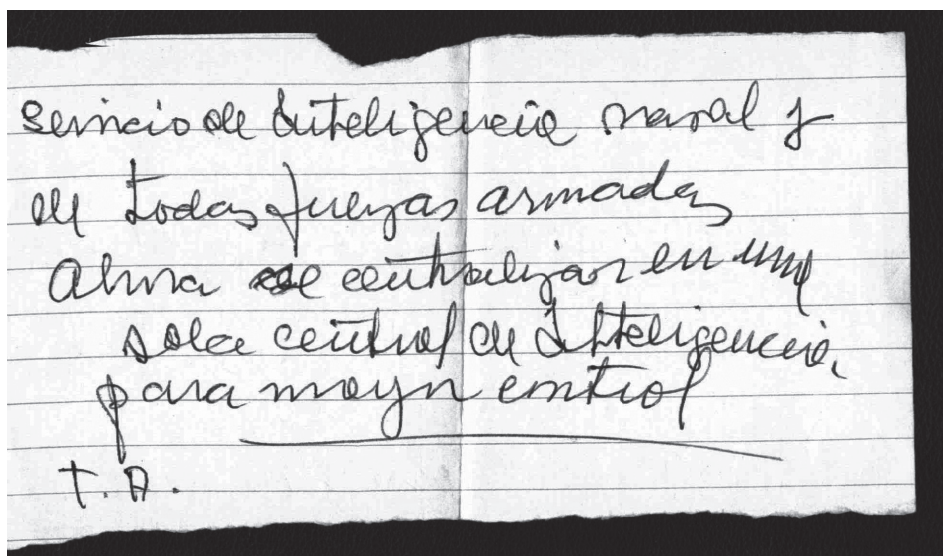 Servicio de Inteligencia naval y
de todas fuerzas armadas
Ahora se centralizan en una
sola central de Inteligencia,
para mayor control
T. A.